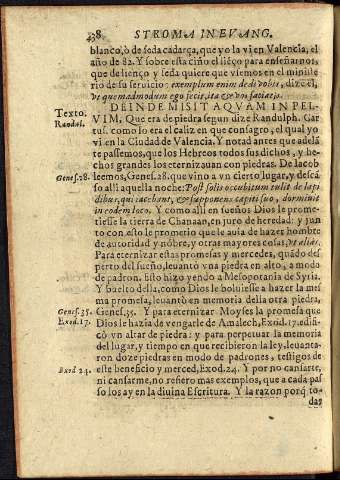 438 STROMA IN EVANG.
blanco, ò de seda cadarça, que yo la vi en Valencia, el
año de 82. Y sobre esta ciño el liẽço para enseñarnos,
que de lienço y seda quiere que vsemos en el ministe
rio de su seruicio: exemplum enim dedi vobis, dize el,
vt quemadmodum ego feci, ita & vos faciatis.
DEINDE MISIT AQVAM IN PEL-
Texto.
VIM, Que era de piedra segun dize Randulph. Car
Raudul.
tus. como lo era el caliz en que consagro, el qual yo
vi en la Ciudad de Valencia. Y notad antes que adelã
te passemos, que los Hebreos todos sus dichos, y he-
chos grandes los eternizauan con piedras. De Iacob
Genes. 28.
leemos, Genes. 28. que vino a vn cierto lugar, y descã
so alli aquella noche: Post solis occubitum tulit de lapi
dibus, qui iacebant, & supponens capiti suo, dormiuit
in eodem loco. Y como alli en sueños Dios le prome-
tiesse la tierra de Chanaan, en juro de heredad: y jun
to con esto le prometio que le auia de hazer hombre
de autoridad y nõbre, y otras mayores cosas, vt alias.
Para eternizar estas promesas y mercedes, quãdo des
perto del sueño, leuantò vna piedra en alto, a modo
de padron. Esto hizo yendo a Mesopotania de Syria.
Y buelto della, como Dios le boluiesse a hazer la mes
ma promesa, leuantò en memoria della otra piedra,
Genes. 35.
Genes. 35. Y para eternizar Moyses la promesa que
Exod. 17.
Dios le hazia de vengarle de Amalech, Exod. 17. edifi
cò vn altar de piedra: y para perpetuar la memoria
del lugar, y tiempo en que recibieron la ley, leuanta-
ron doze piedras en modo de padrones, testigos de
Exod 24.
este beneficio y merced, Exod. 24. Y por no cansarte,
ni cansarme, no refiero mas exemplos, que a cada pas
so los ay en la diuina Escritura. Y la razon porq̃ to-
das